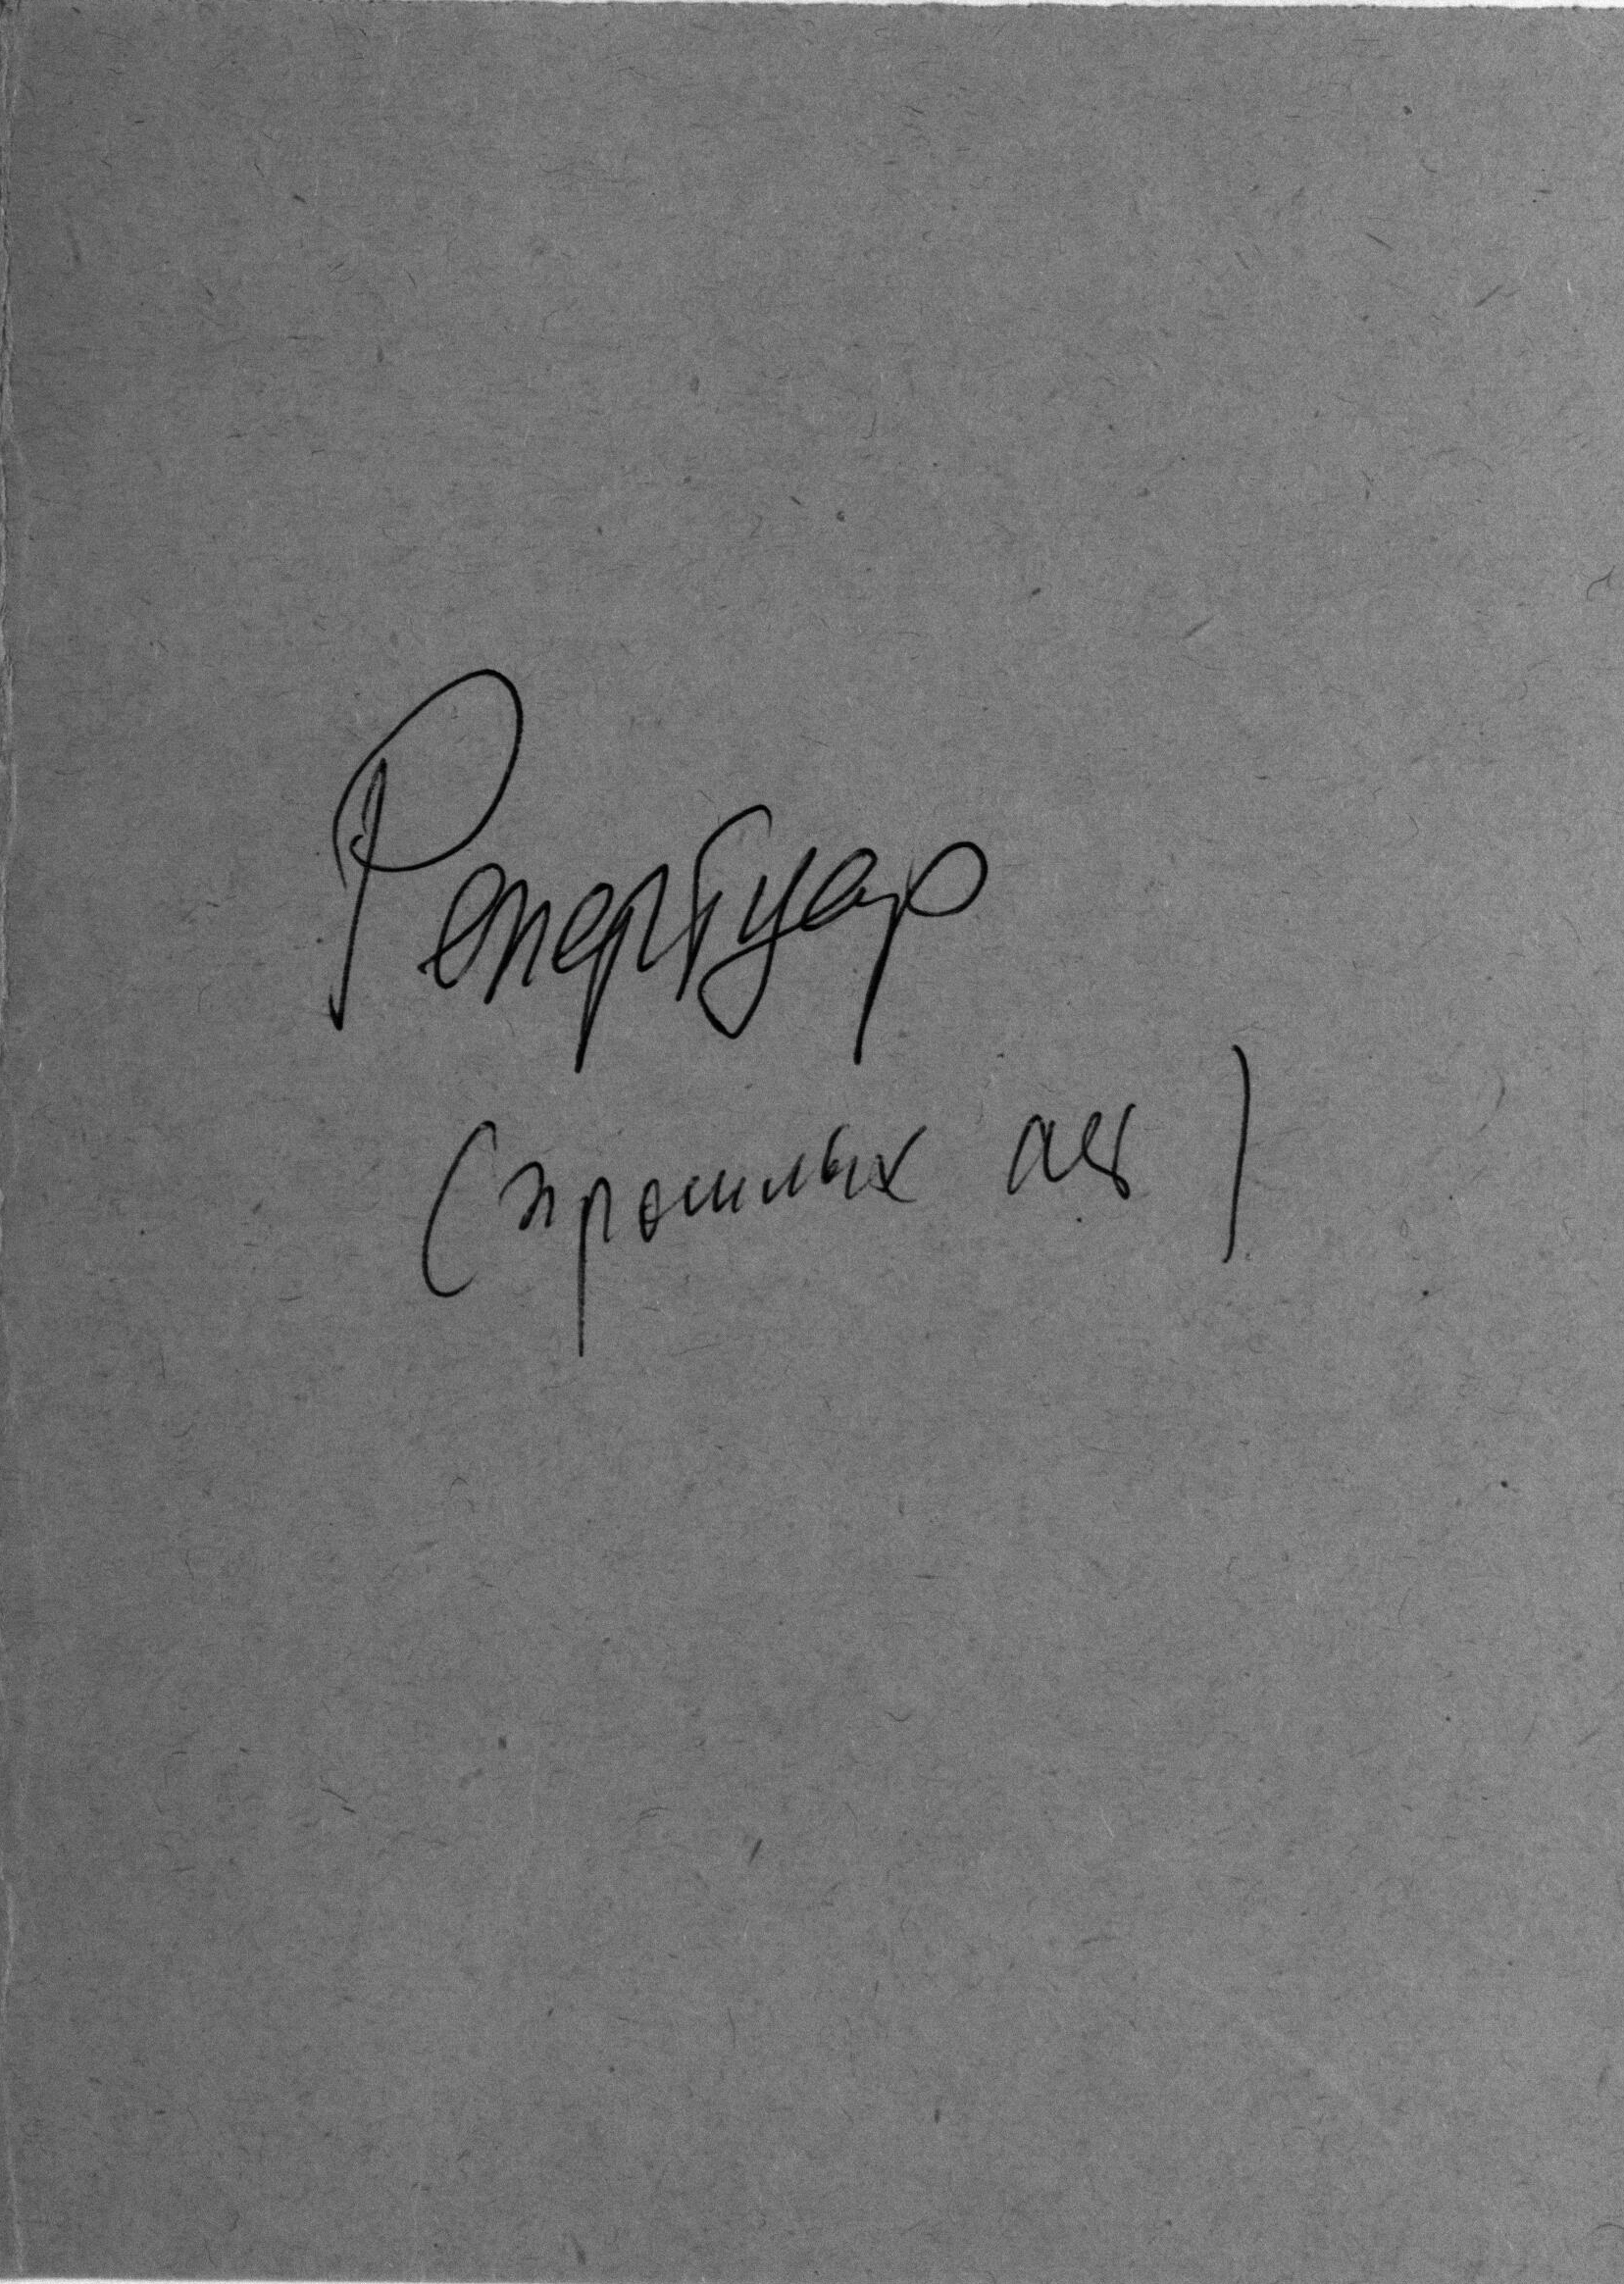 Репертуар
(прошлых лет)